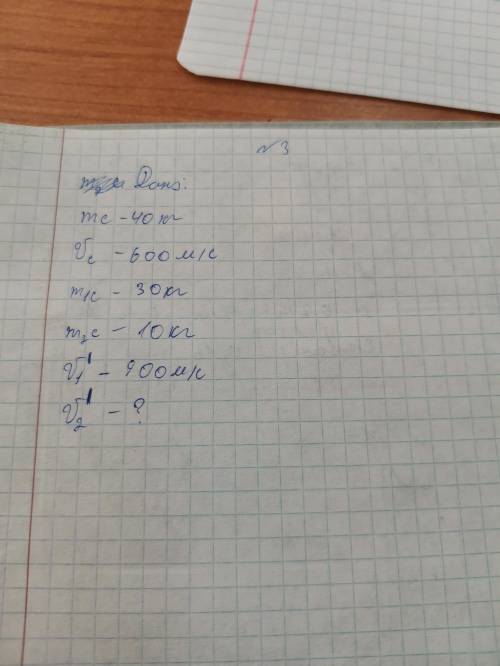 №3
Дано:
mс - 40 кг
υс - 600 м/с
m₁с - 30 кг
m₂с - 10 кг
υ₁' - 900 м/с
υ₂' - ?